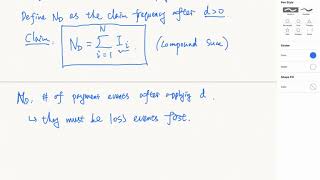 Define N_D as the claim frequency after d>0
Claim. N_D = \sum_{i=1}^{N} I_i (Compound Sum)
N_D, # of payment events after applying d.
↳ they must be loss events first.